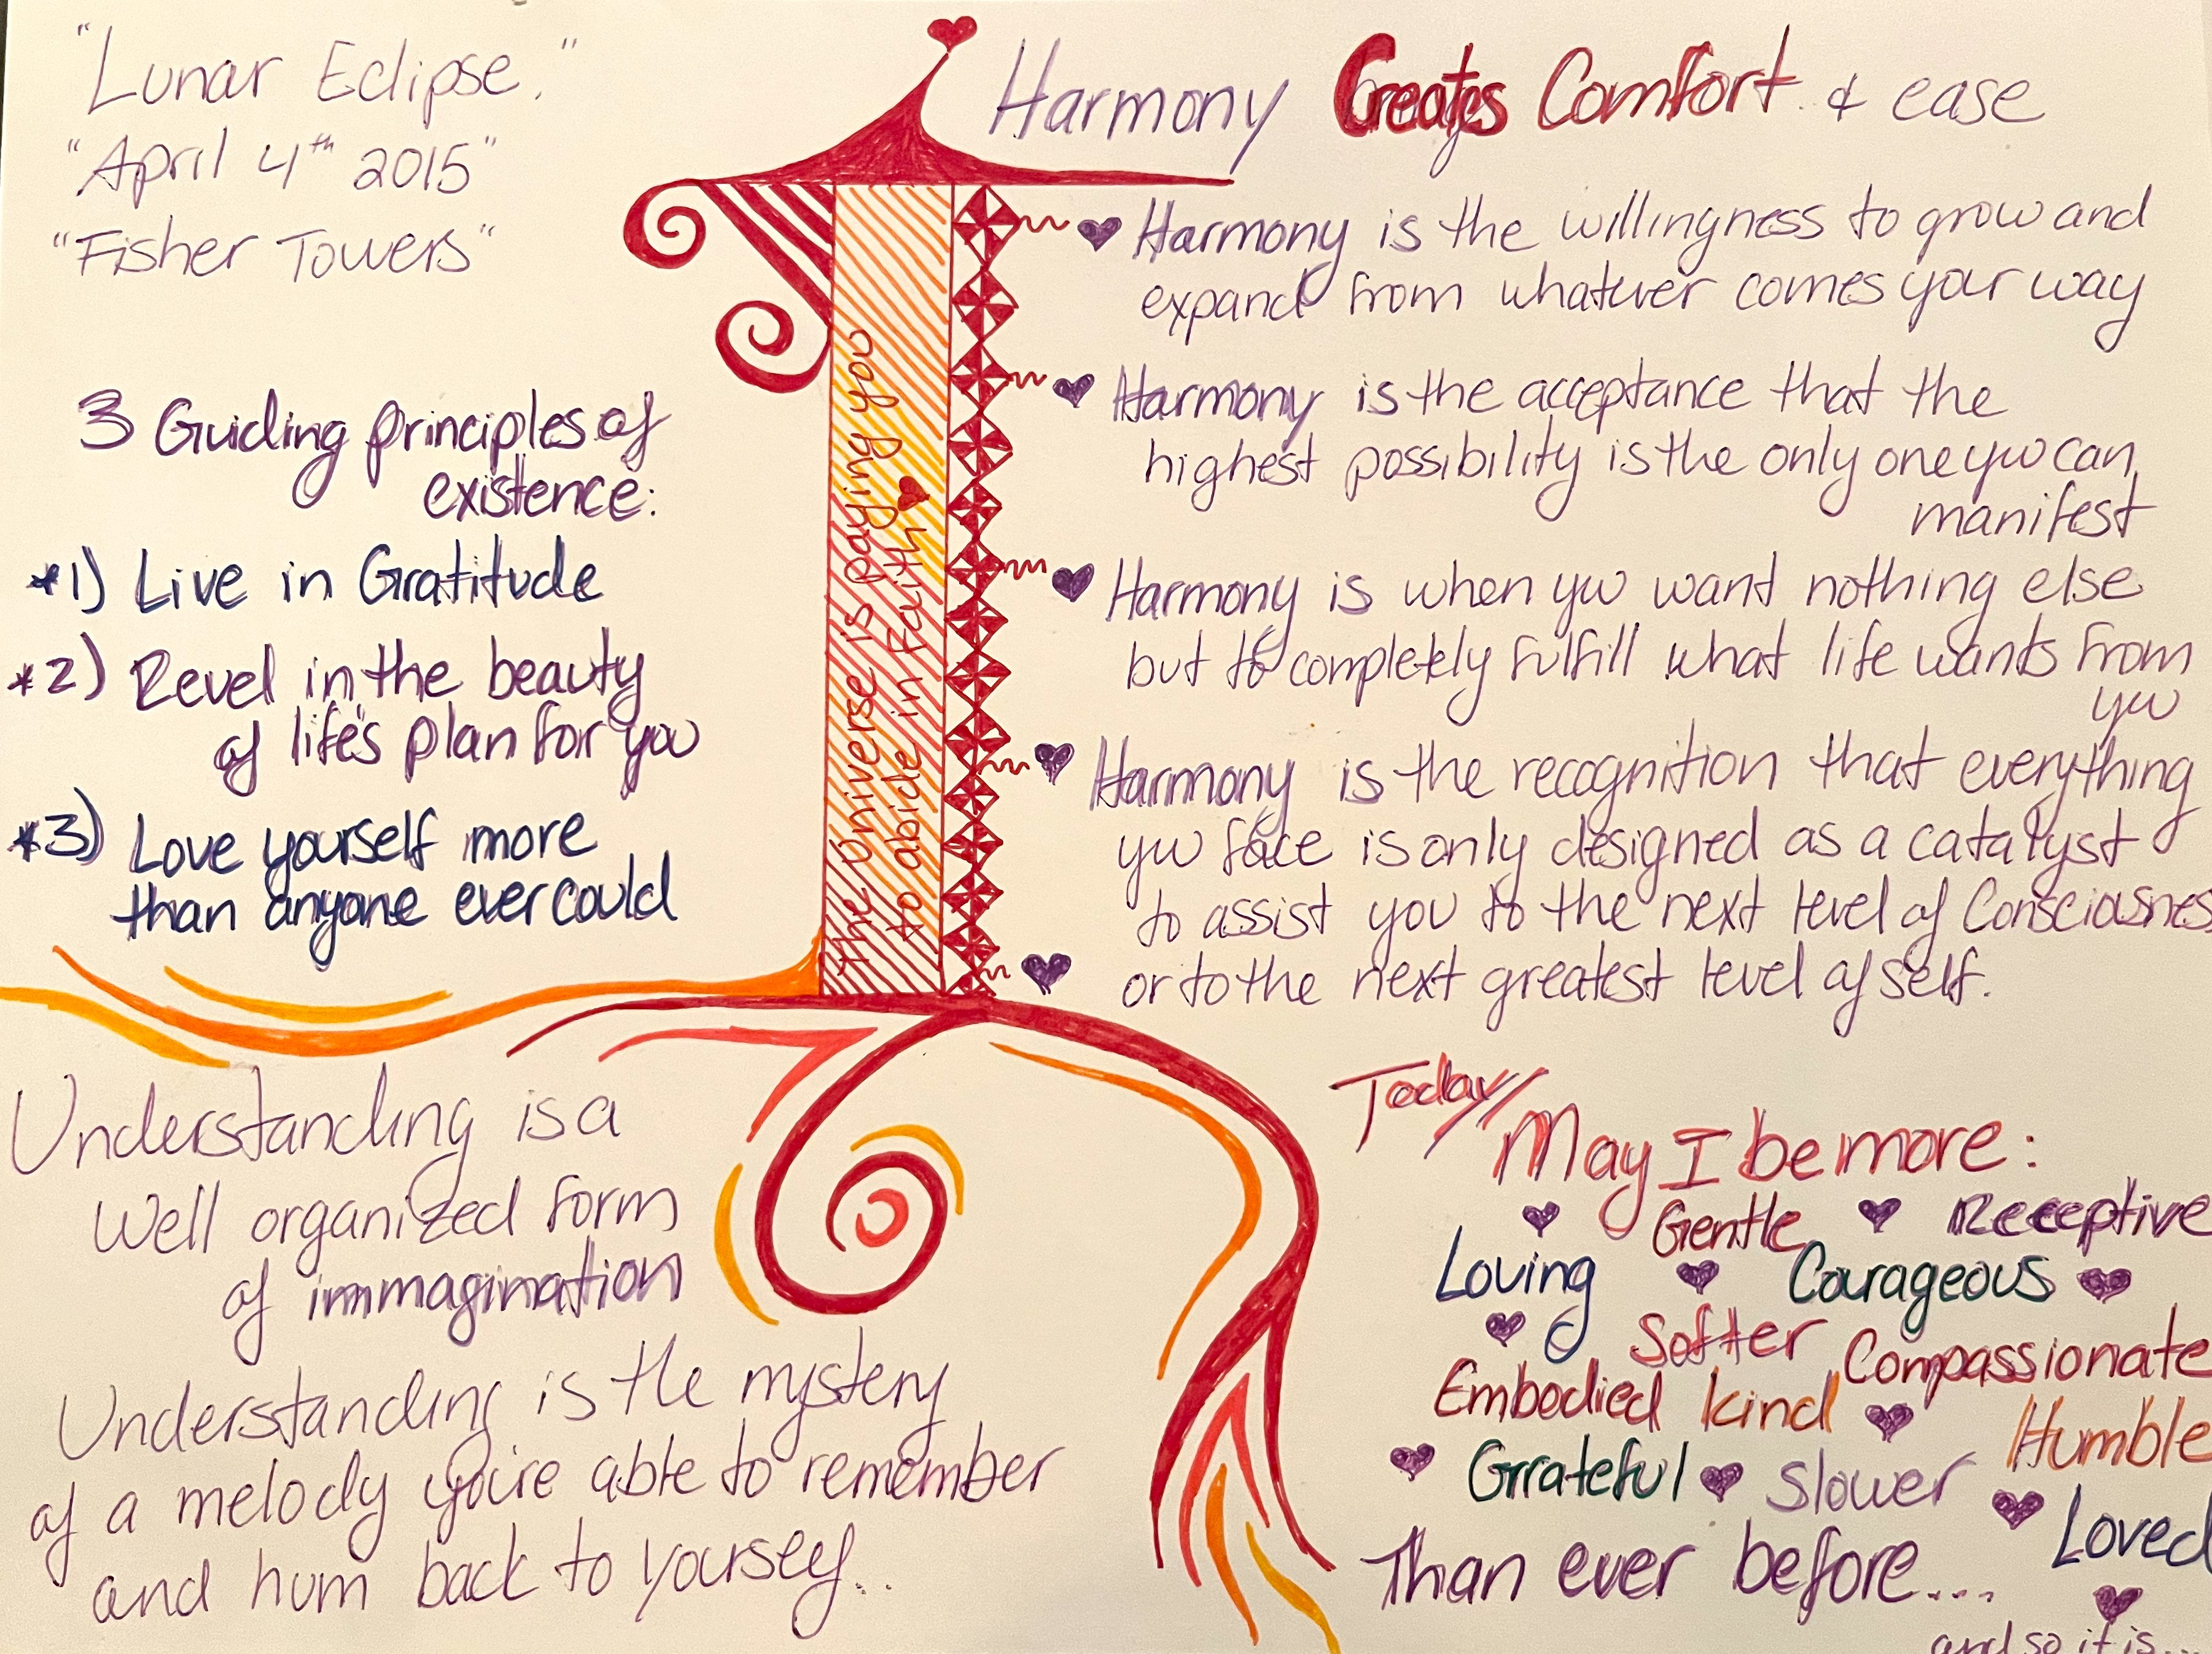 "Lunar Eclipse."
"April 4th 2015"
"Fisher Towers"
3 Guiding principles of
existence:
*1) Live in Gratitude
*2) Revel in the beauty
of life's plan for you
*3) Love yourself more
than anyone ever could
The Universe is paying you
to abide in Faith
Harmony Creates Comfort & ease
Harmony is the willingness to grow and
expand from whatever comes your way
Harmony is the acceptance that the
highest possibility is the only one you can
manifest
Harmony is when you want nothing else
but to completely fulfill what life wants from
you
Harmony is the recognition that everything
you face is only designed as a catalyst
to assist you to the next level of Consciousness
or to the next greatest level of self.
Understanding is a
Well organized form
of immagination
Understanding is the mystery
of a melody you're able to remember
and hum back to yourself..
Today
May I be more:
Gentle Receptive
Loving Courageous
Softer Compassionate
Embodied kind Humble
Grateful Slower
Loved
Than ever before...
and so it is...